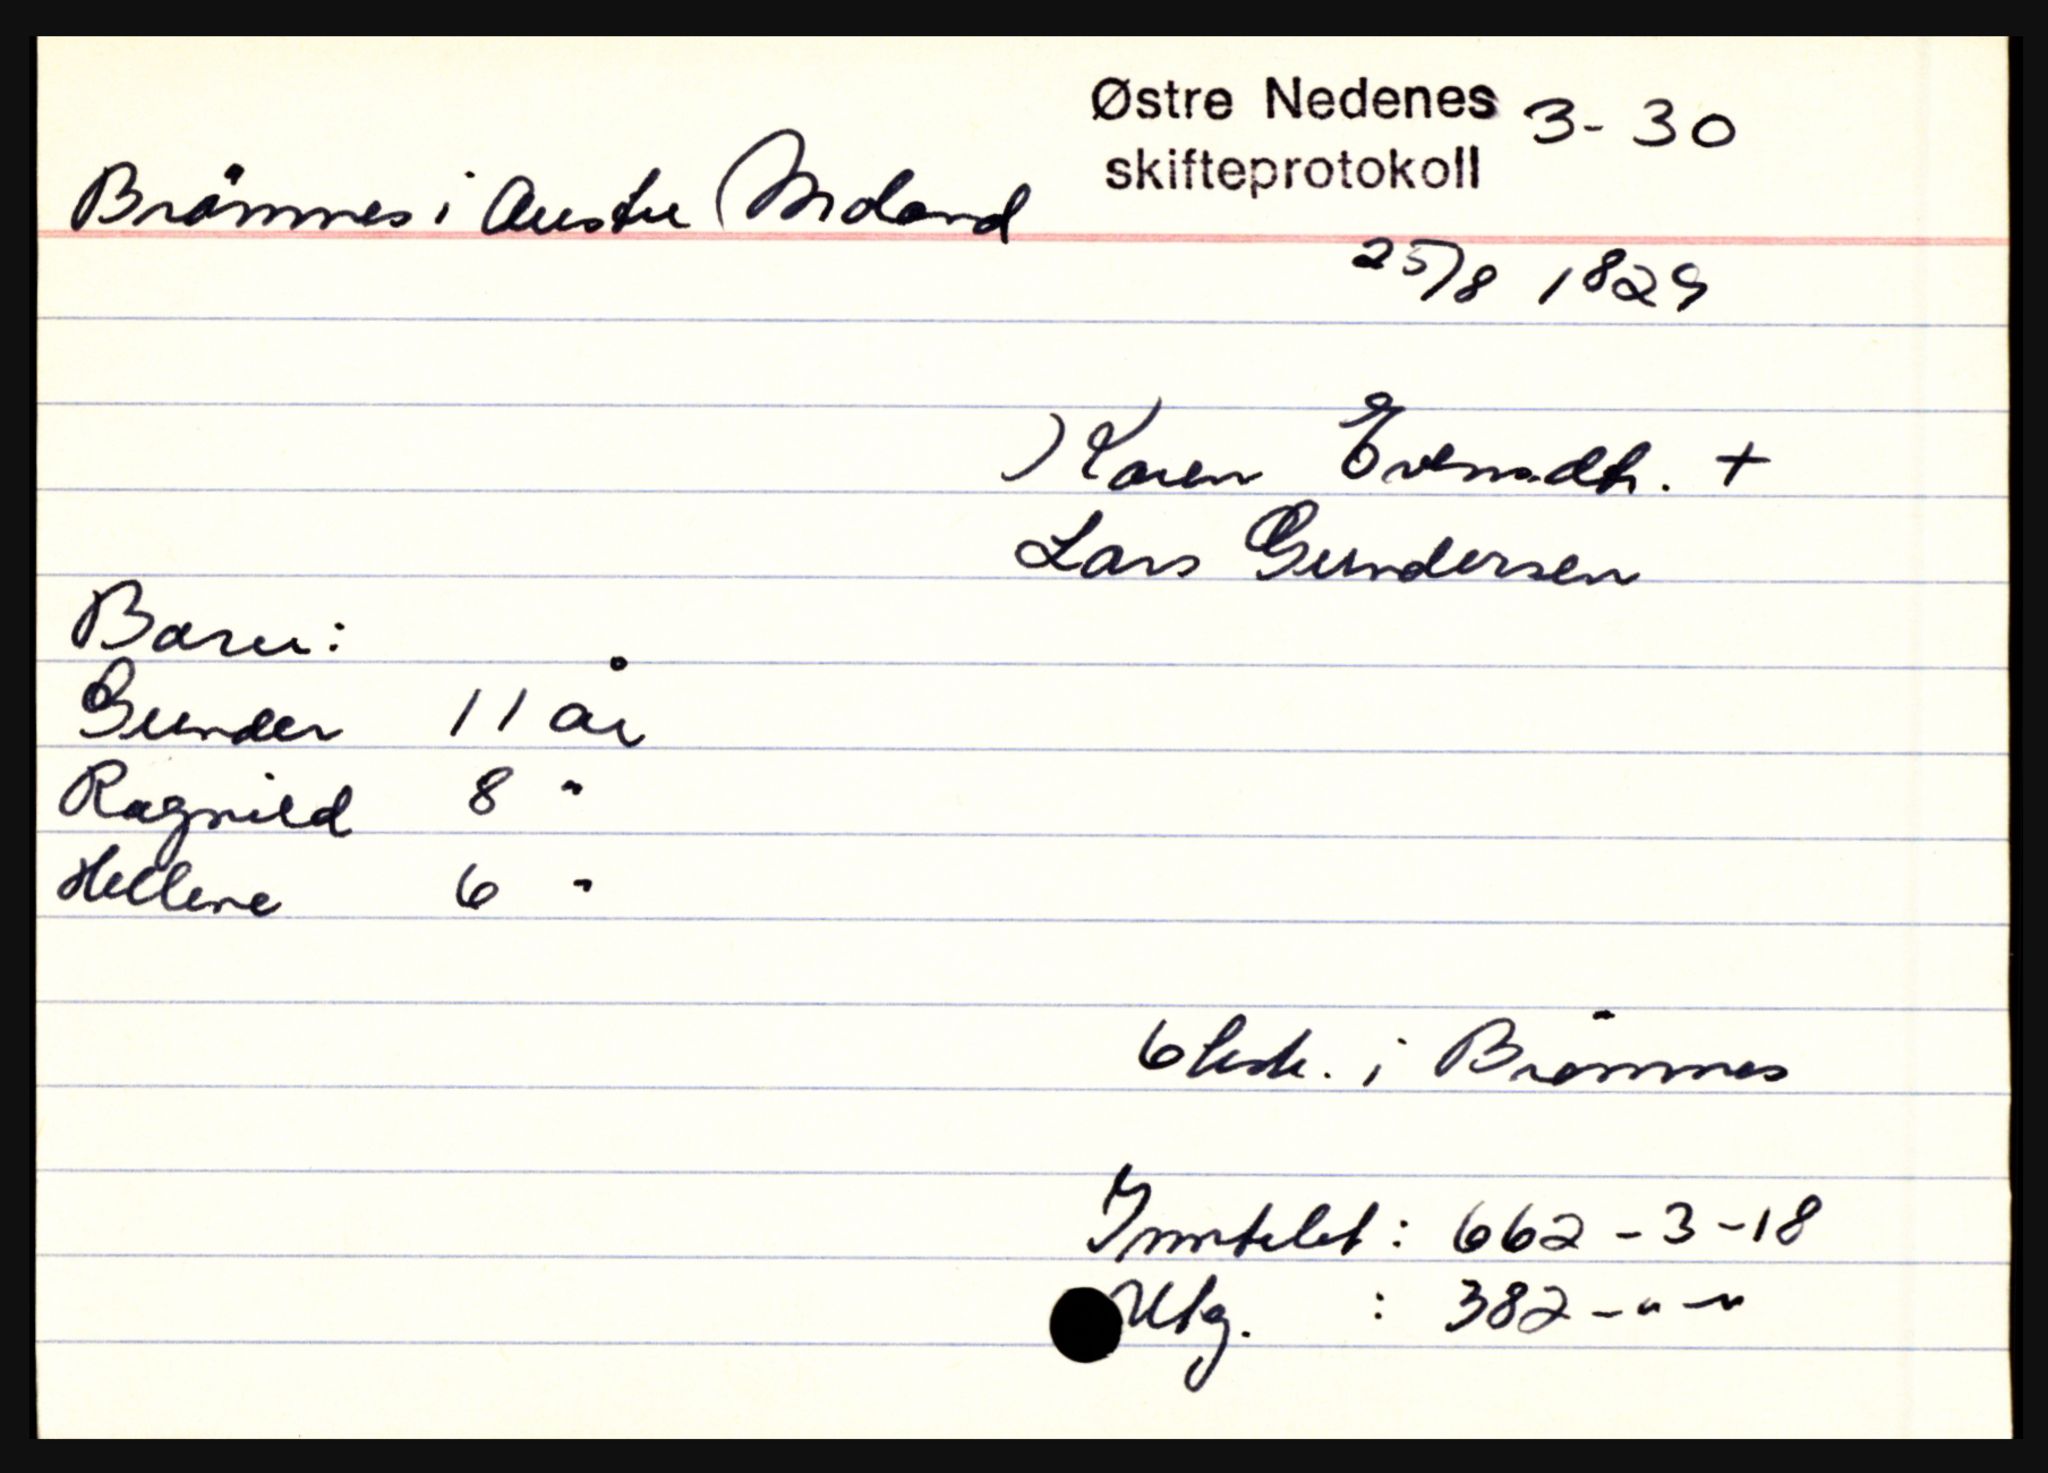 Østre Nedenes 3-30
skifteprotokoll
Brömnes i Austre Moland
25/8 1829
Karen Evensdtr. +
Lars Gundersen
Barn:
Gunder 11 år
Ragnild 8 "
Hellene 6 "
6 i Brömnes
Inntekt: 662-3-18
Utg. : 382-"-"